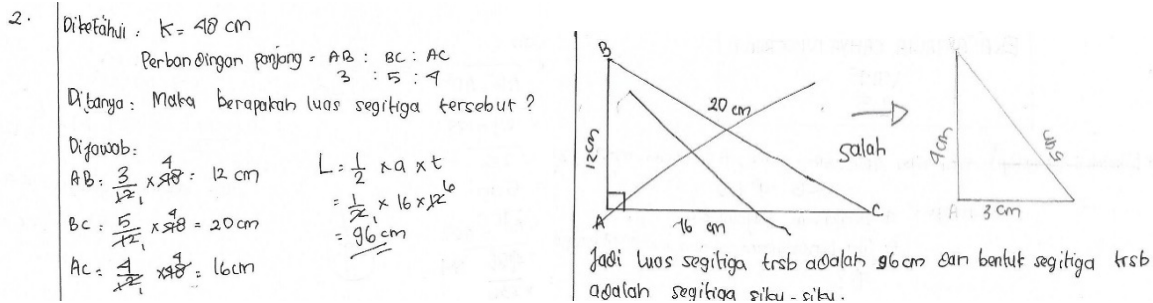 2.
Diketahui : K = 48 cm
Perbandingan panjang = AB : BC : AC
3 : 5 : 4
Ditanya : Maka berapakah luas segitiga tersebut ?
Dijawab:
AB = 3/12 1 x 48 4 = 12 cm
BC = 5/12 1 x 48 4 = 20 cm
AC = 4/12 1 x 48 4 = 16 cm
L = 1/2 x a x t
= 1/2 1 x 16 x 12 6
= 96 cm
B
12 cm
20 cm
A
16 cm
C
Salah
4 cm
5 cm
A
3 cm
Jadi luas segitiga trsb adalah 96 cm dan bentuk segitiga trsb
adalah segitiga siku - siku.